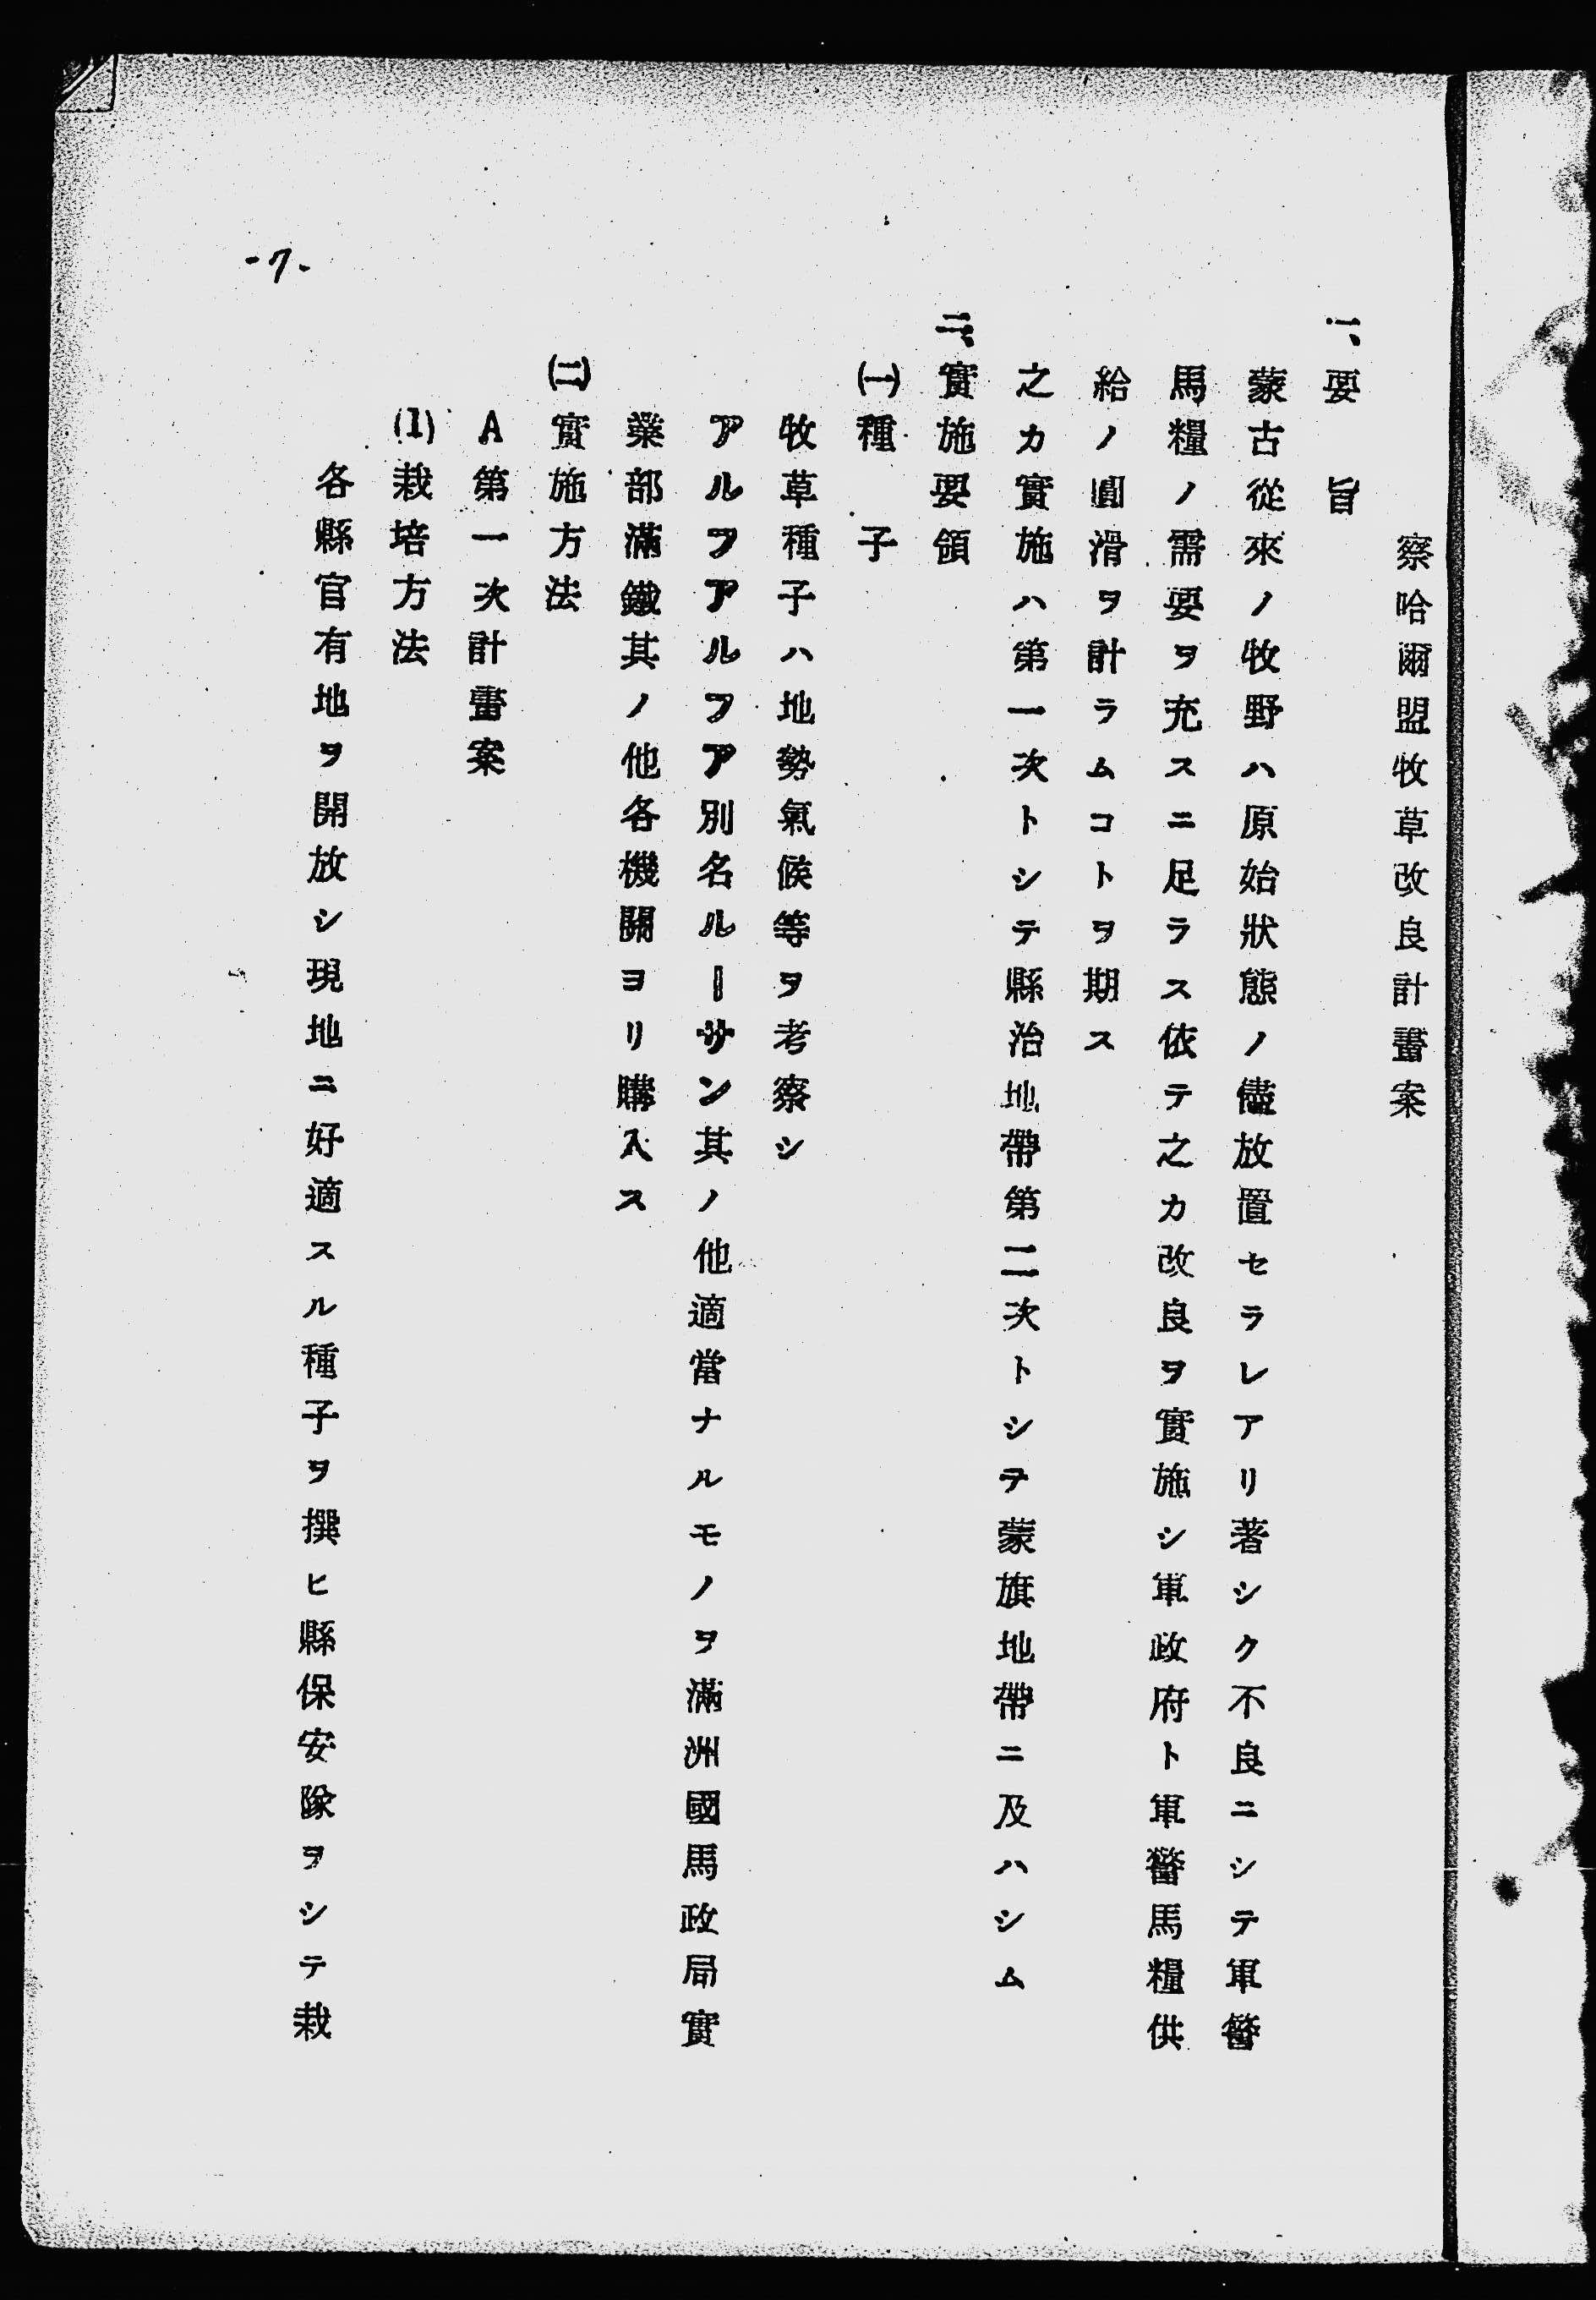 察哈爾盟牧草改良計畫案
一、要旨
蒙古從來ノ牧野ハ原始狀態ノ儘放置セラレアリ著シク不良ニシテ軍警
馬糧ノ需要ヲ充スニ足ラス依テ之カ改良ヲ實施シ軍政府ト軍警馬糧供
給ノ圓滑ヲ計ラムコトヲ期ス
之カ實施ハ第一次トシテ縣治地帶第二次トシテ蒙旗地帶ニ及ハシム
二、實施要領
(一)種子
牧草種子ハ地勢氣候等ヲ考察シ
アルフアルフア別名ルーサン其ノ他適當ナルモノヲ滿洲國馬政局實
業部滿鐵其ノ他各機關ヨリ購入ス
(二)實施方法
A第一次計畫案
(1)栽培方法
各縣官有地ヲ開放シ現地ニ好適スル種子ヲ撰ヒ縣保安隊ヲシテ栽
-7-